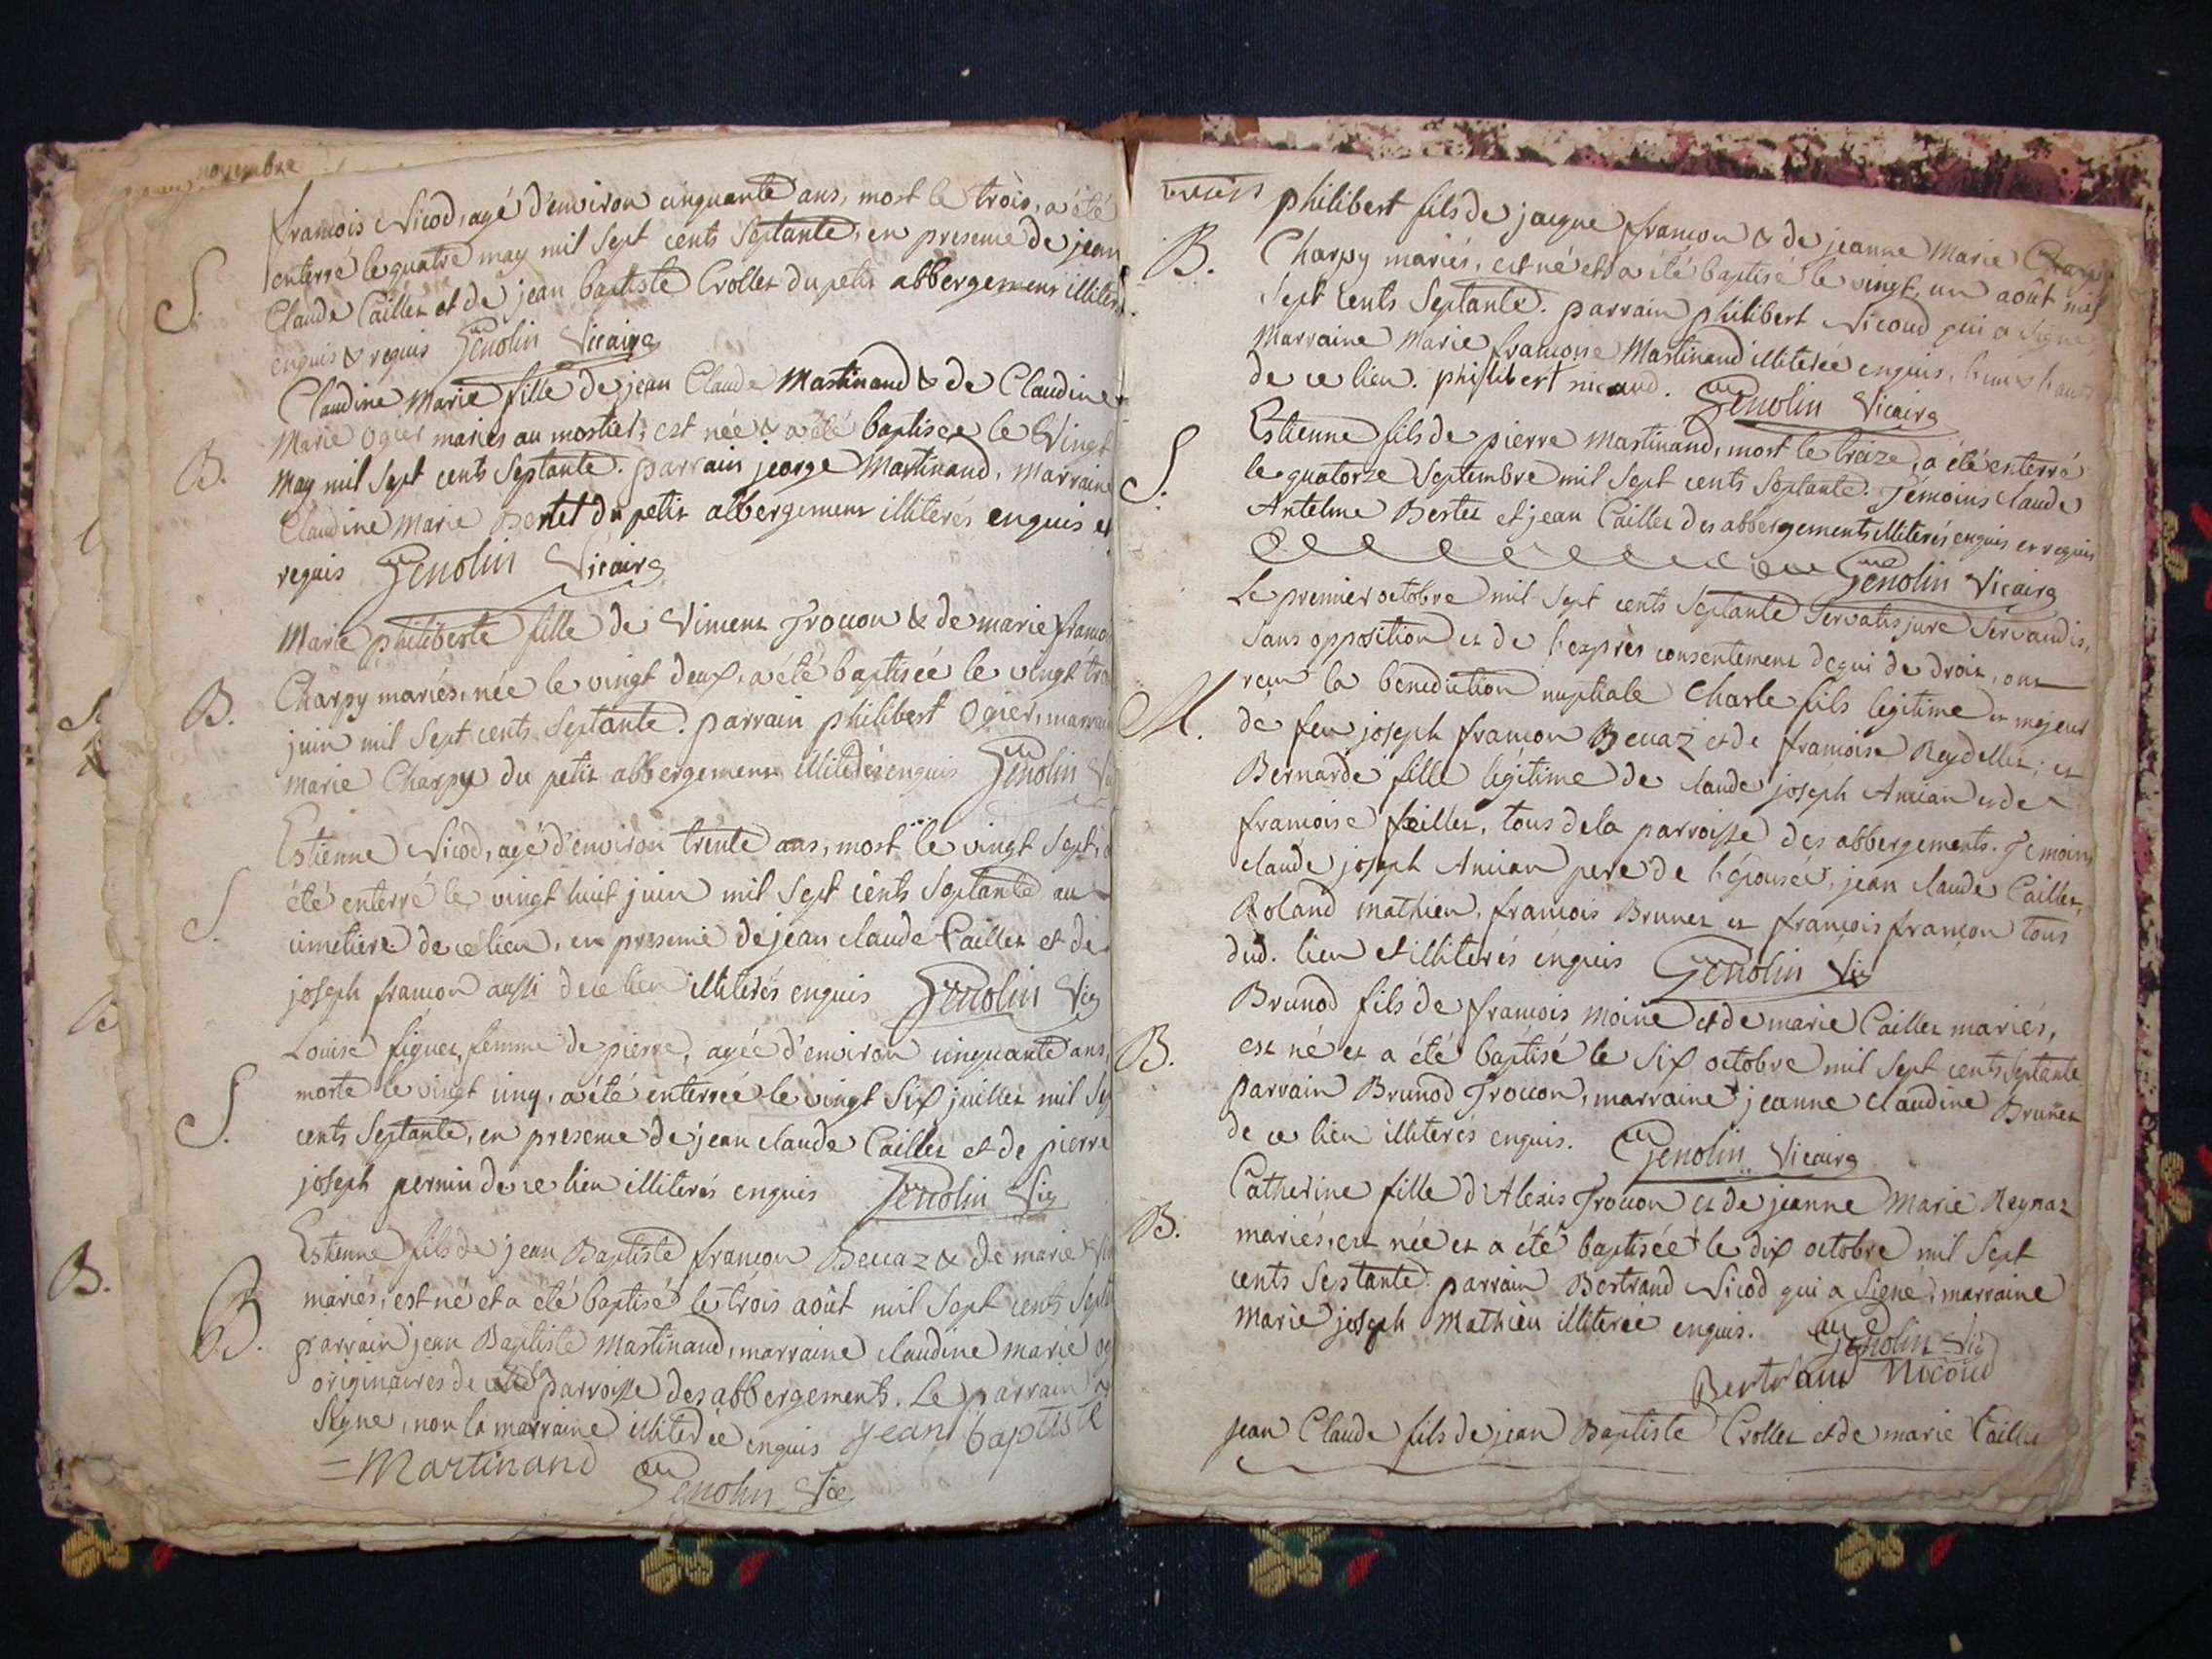 novembre
S.
françois Nicod, agé d'environ cinquante ans, mort le trois, a été
enterré le quatre may mil sept cents septante, en presence de jean
Claude Caillet et de jean baptiste Crollet du petit abbergement illiterés
enquis & requis Genolin Vicaire
B.
Claudine Marie fille de jean Claude Martinand & de Claudine
Marie Ogier mariés au mostier, est née & a été baptisée le Vingt
May mil sept cents septante. parrain jeorge Martinand, Marraine
Claudine Marie Bertet du petit abbergement illiterés enquis et
requis Genolin Vicaire
B.
Marie philiberte fille de Vincent Trocon & de marie franco
Charpy mariés, née le vingt deux, a été baptisée le vingt tro
juin mil sept cents septante. parrain philibert Ogier, marrai
marie Charpy du petit abbergement illiterés enquis Genolin Vic
S.
Estienne Nicod, agé d'environ trente ans, mort le vingt sept, a
été enterré le vingt huit juin mil sept cents septante au
cimetiere de ce lieu, en presence de jean claude Caillet et de
joseph françon aussi de ce lieu illiterés enquis Genolin Vic
S.
Louise figuet, femme de pierre, agée d'environ cinquante ans,
morte le vingt cinq, a été enterrée le vingt six juillet mil sep
cents septante, en presence de jean claude Caillet et de pierre
joseph pernin de ce lieu illiterés enquis Genolin Vic
B.
B.
Estienne fils de jean Baptiste françon Beuaz & de marie
mariés, est né et a été baptisé le trois août mil sept cents septa
parrain jean Baptiste Martinand, marraine claudine marie og
originaires de parroisse des abbergements. Le parrain a
signé, non la marraine illiterée enquis jean baptiste
= Martinand Genolin Vic
philibert fils de jacque françon & de jeanne Marie Charpy
B.
Charpy mariés, est né et a été baptisé le vingt un août mil
sept cents septante. parrain philibert Nicoud qui a signé
Marraine Marie françoise Martinand illiterée enquis,
de ce lieu. philibert nicoud. Genolin Vicaire
S.
Estienne fils de pierre Martinand, mort le treize, a été enterré
le quatorze septembre mil sept cents septante. Témoins claude
Antelme Bertet et jean Caillet des abbergements illiterés enquis et requis
Genolin Vicaire
Le premier octobre mil sept cents septante servatis jure servandis,
sans opposition et de l'exprès consentement de qui de droit, ont
M.
reçu la benediction nuptiale Charle fils légitime et majeur
de feu joseph françon Beuaz et de françoise Reydellet; et
Bernarde fille légitime de claude joseph Ancian et de
françoise faillet, tous de la parroisse des abbergements. Témoins
claude joseph Ancian pere de l'épouse, jean claude Caillet,
Roland mathieu, françois Brunet et françois françon tous
dud. lieu et illiterés enquis Genolin Vic
B.
Brunod fils de françois Moine et de marie Caillet mariés,
est né et a été baptisé le six octobre mil sept cents septante
parrain Brunod Trocon, marraine jeanne claudine Brunet
de ce lieu illiterés enquis. Genolin Vicaire
B.
Catherine fille d'Alexis Trocon et de jeanne Marie Reynaz
mariés, est née et a été baptisée le dix octobre mil sept
cents septante. parrain Bertrand Nicod qui a signé, marraine
Marie joseph Mathieu illiterée enquis. Genolin Vic
Bertrand Nicoud
jean Claude fils de jean Baptiste Crollet et de marie Caillet